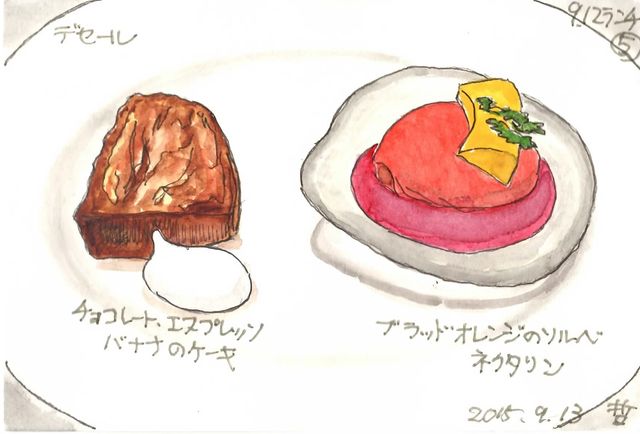 デセール
9.12ランチ
⑤
チョコレート、エスプレッソ
バナナのケーキ
ブラッドオレンジのソルベ
ネクタリン
2015.9.13 哲